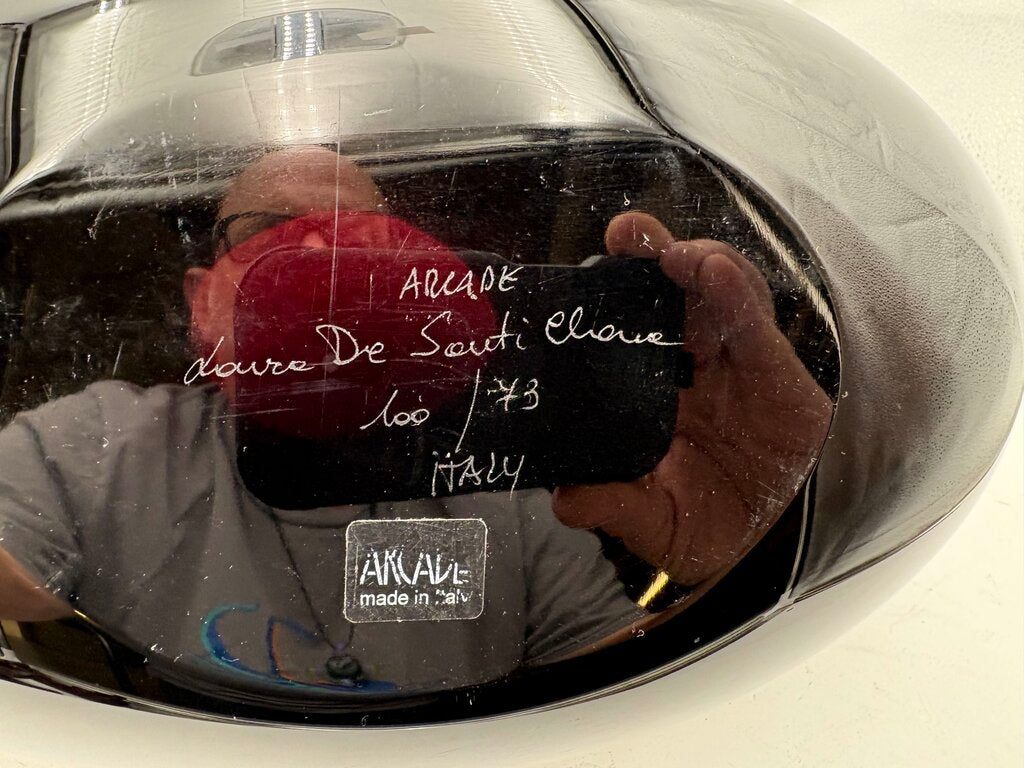 ARCADE
Laura De Santillana
100/73
ITALY
ARCADE
made in Italy